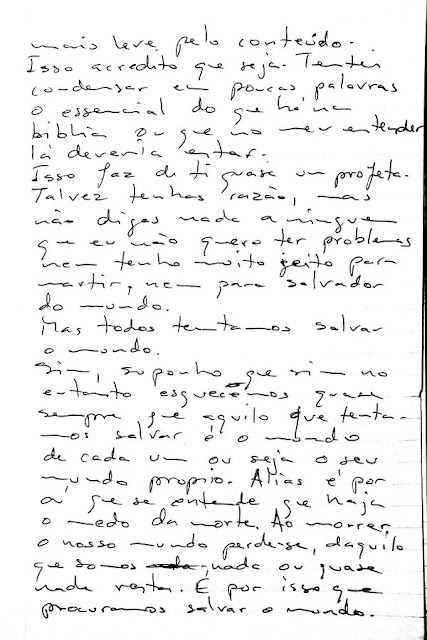 mais leve, pelo conteúdo.
Isso acredito que seja. Tentei
condensar em poucas palavras
o essencial do que há na
bíblia ou que no meu entender
lá deveria estar.
Isso faz di ti quase um profeta.
Talvez tenhas razão, mas
não digas nada a ninguem
que eu não quero ter problemas
nem tenho muito jeito para
martir, nem para salvador
do mundo.
Mas todos tentamos salvar
o mundo.
Sim, suponho que sim no
entanto esquecemos quase
sempre que aquilo que tenta-
mos salvar é o mundo
de cada um ou seja o seu
mundo proprio. Alias é por
aí que se entende que haja
o medo da morte. Ao morrer
o nosso mundo perde-se, daquilo
que somos nada ou quase
nada resta. E por isso que
procuramos salvar o mundo.